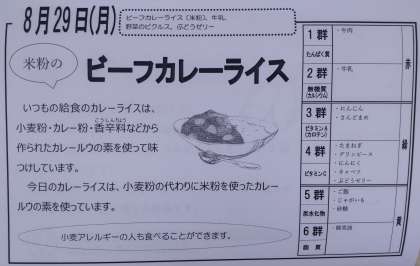 8月29日(月)
ビーフカレーライス(米粉)、牛乳、
野菜のピクルス、ぶどうゼリー
米粉の
ビーフカレーライス
いつもの給食のカレーライスは、
小麦粉・カレー粉・香辛料などから
こうしんりょう
作られたカレールウの素を使って味
つけしています。
今日のカレーライスは、小麦粉の代わりに米粉を使ったカレー
ルウの素を使っています。
小麦アレルギーの人も食べることができます。
1群
たんぱく質
・牛肉
2群
無機質
(カルシウム)
・牛乳
赤
3群
ビタミンA
(カロテン)
・にんじん
・さんどまめ
4群
ビタミンC
・たまねぎ
・グリンピース
・にんにく
・キャベツ
・ぶどうゼリー
緑
5群
炭水化物
・ご飯
・じゃがいも
・砂糖
6群
脂質
黄